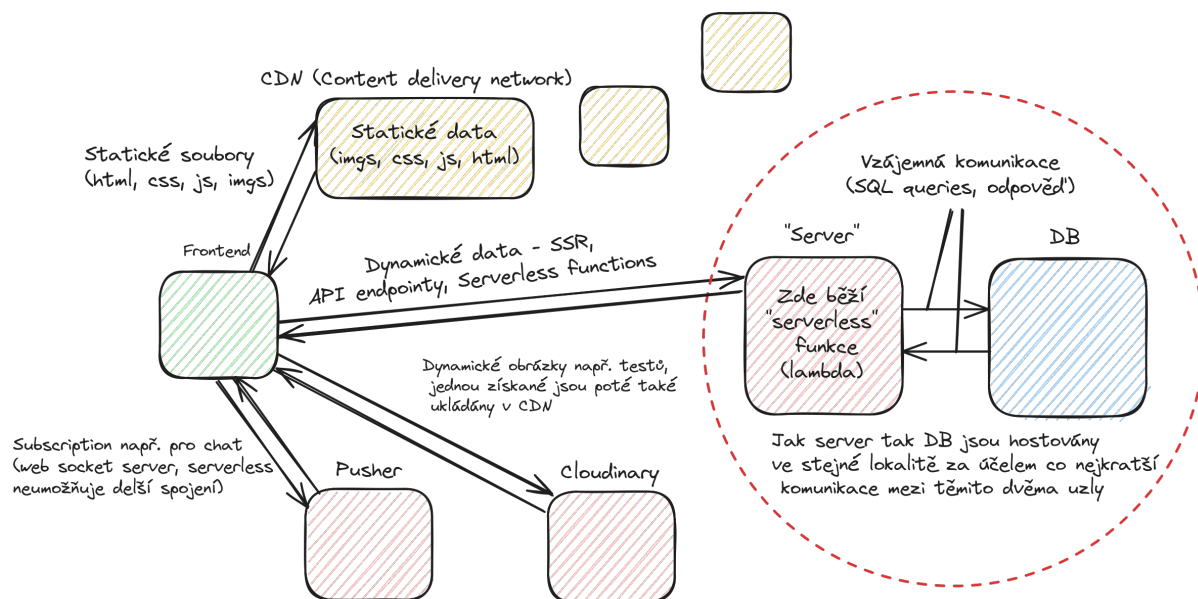 CDN (Content delivery network)
Statické data
(imgs, css, js, html)
Statické soubory
(html, css, js, imgs)
Vzájemná komunikace
(SQL queries, odpověď)
"Server"
DB
Frontend
Dynamické data - SSR,
API endpointy, Serverless functions
Zde běží
"serverless"
funkce
(lambda)
Dynamické obrázky např. testů,
jednou získané jsou poté také
ukládány v CDN
Subscription např. pro chat
(web socket server, serverless
neumožňuje delší spojení)
Pusher
Cloudinary
Jak server tak DB jsou hostovány
ve stejné lokalitě za účelem co nejkratší
komunikace mezi těmito dvěma uzly